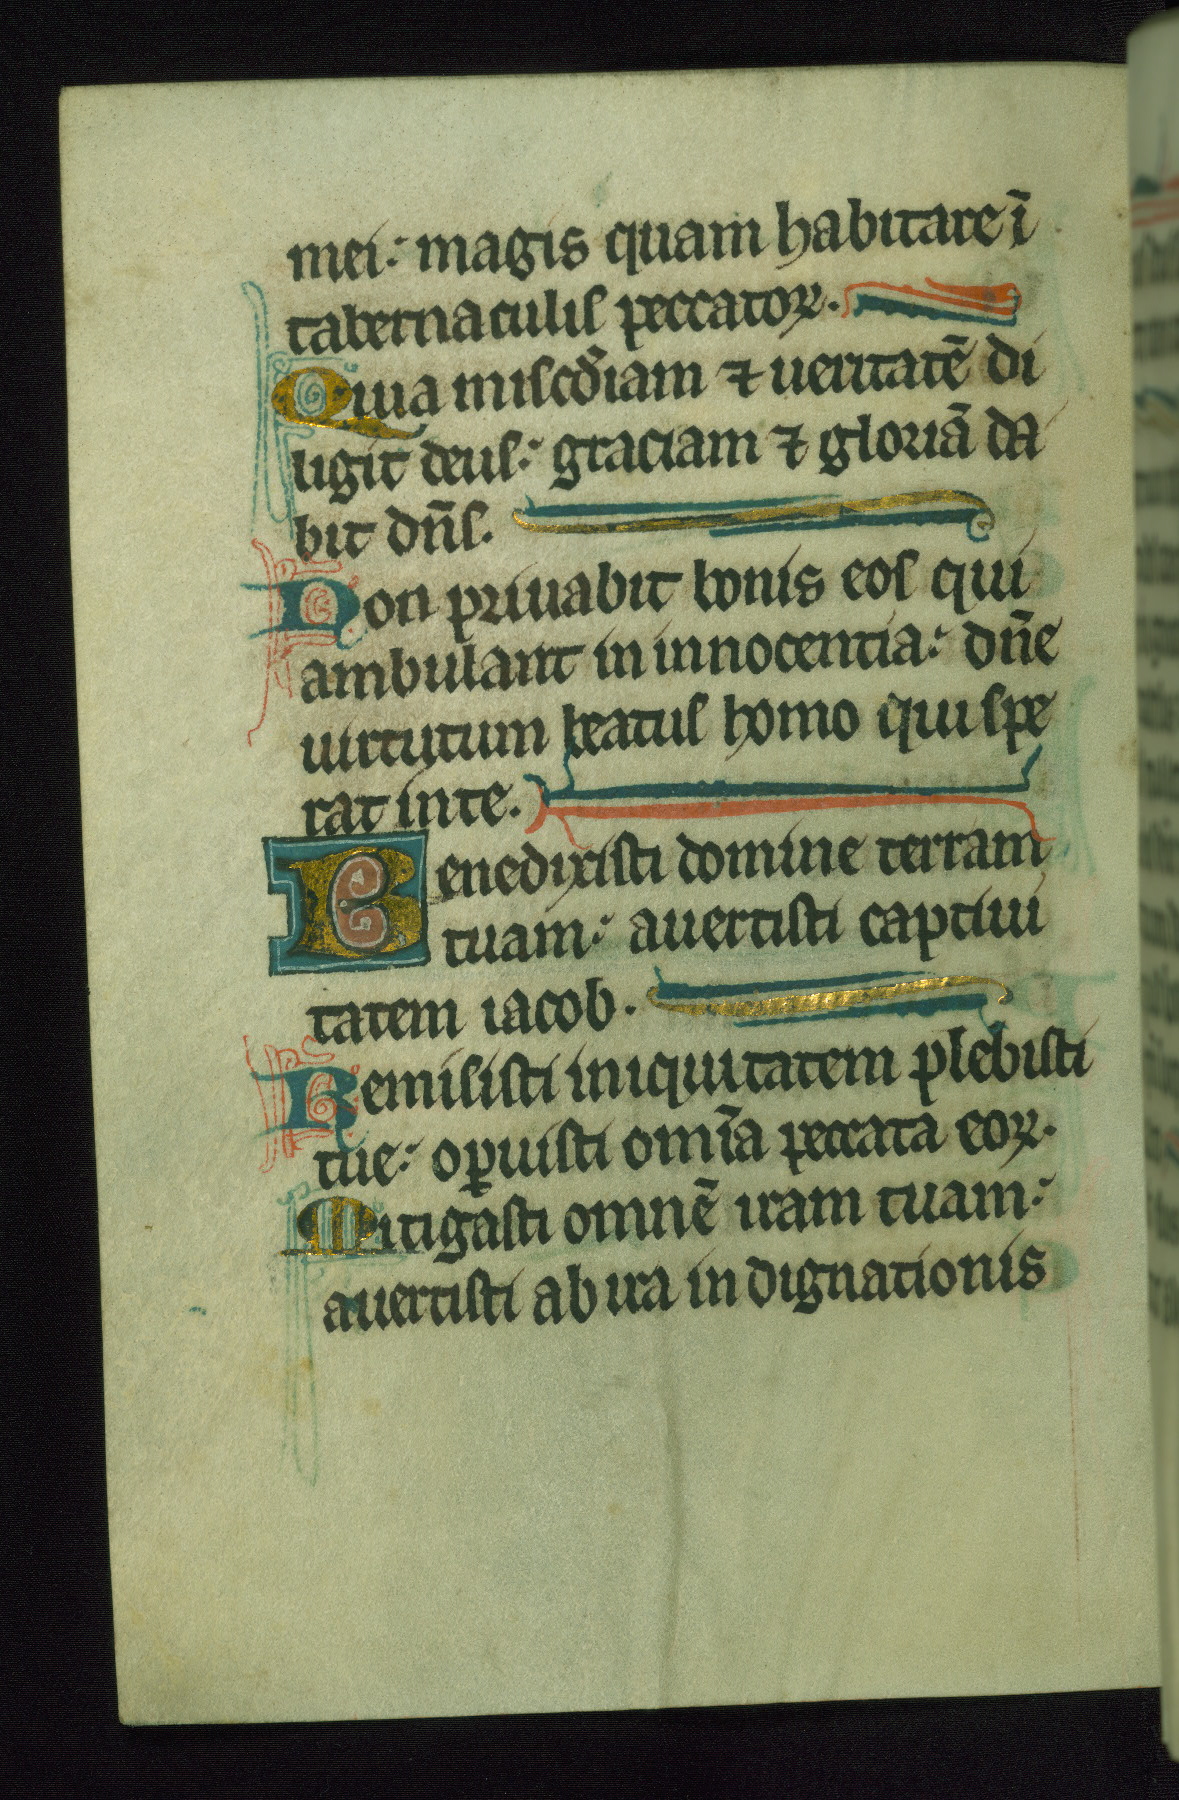 mei: magis quam habitare ī
tabernaculis peccatoꝝ.
Quia misc̄diam ⁊ ueritatē di
ligit deus: graciam ⁊ gloriā da
bit dn̄s.
Non priuabit bonis eos qui
ambulant in innocentia: dn̄e
uirtutum beatus homo qui spe
rat in te.
Benedixisti domine terram
tuam: auertisti captiui
tatem iacob.
Remisisti iniquitatem plebis ti
tue: oꝑuisti om̄ia peccata eoꝝ.
Mitigasti omnē iram tuam:
auertisti ab ira indignationis